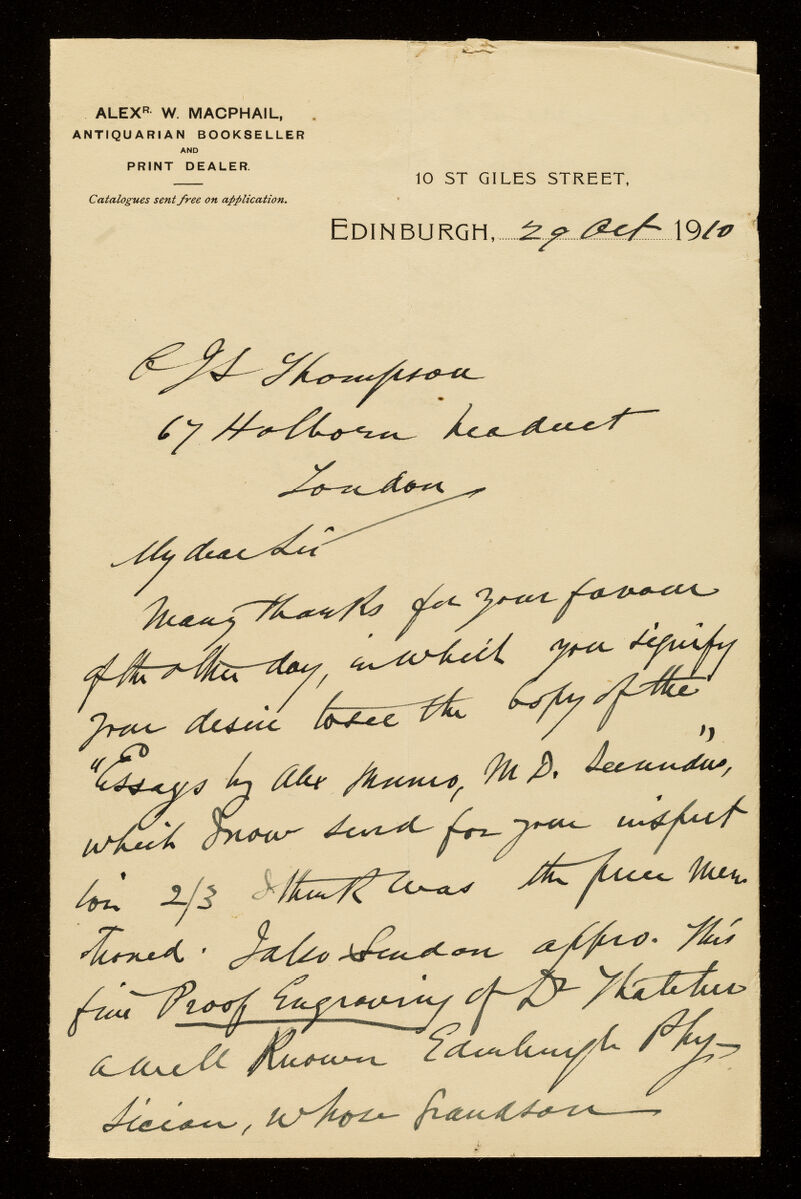 ALEXR. W. MACPHAIL,
ANTIQUARIAN BOOKSELLER
AND
PRINT DEALER.
Catalogues sent free on application.
10 ST GILES STREET,
EDINBURGH, 29 Oct 1910
C J S Thompson
67 Holborn Viaduct
London
My dear Sir
Many thanks for your favour
of the other day, in which you signify
your desire to see the copy of the
"Essays by Alex Munro, M.D. Secundus",
which I now send for your inspect
ion 2/3 I think was the price men
tioned. I also send on appro. This
fine Proof Engraving of Dr Thatcher
a well known Edinburgh Phy-
sician, whose Grandson